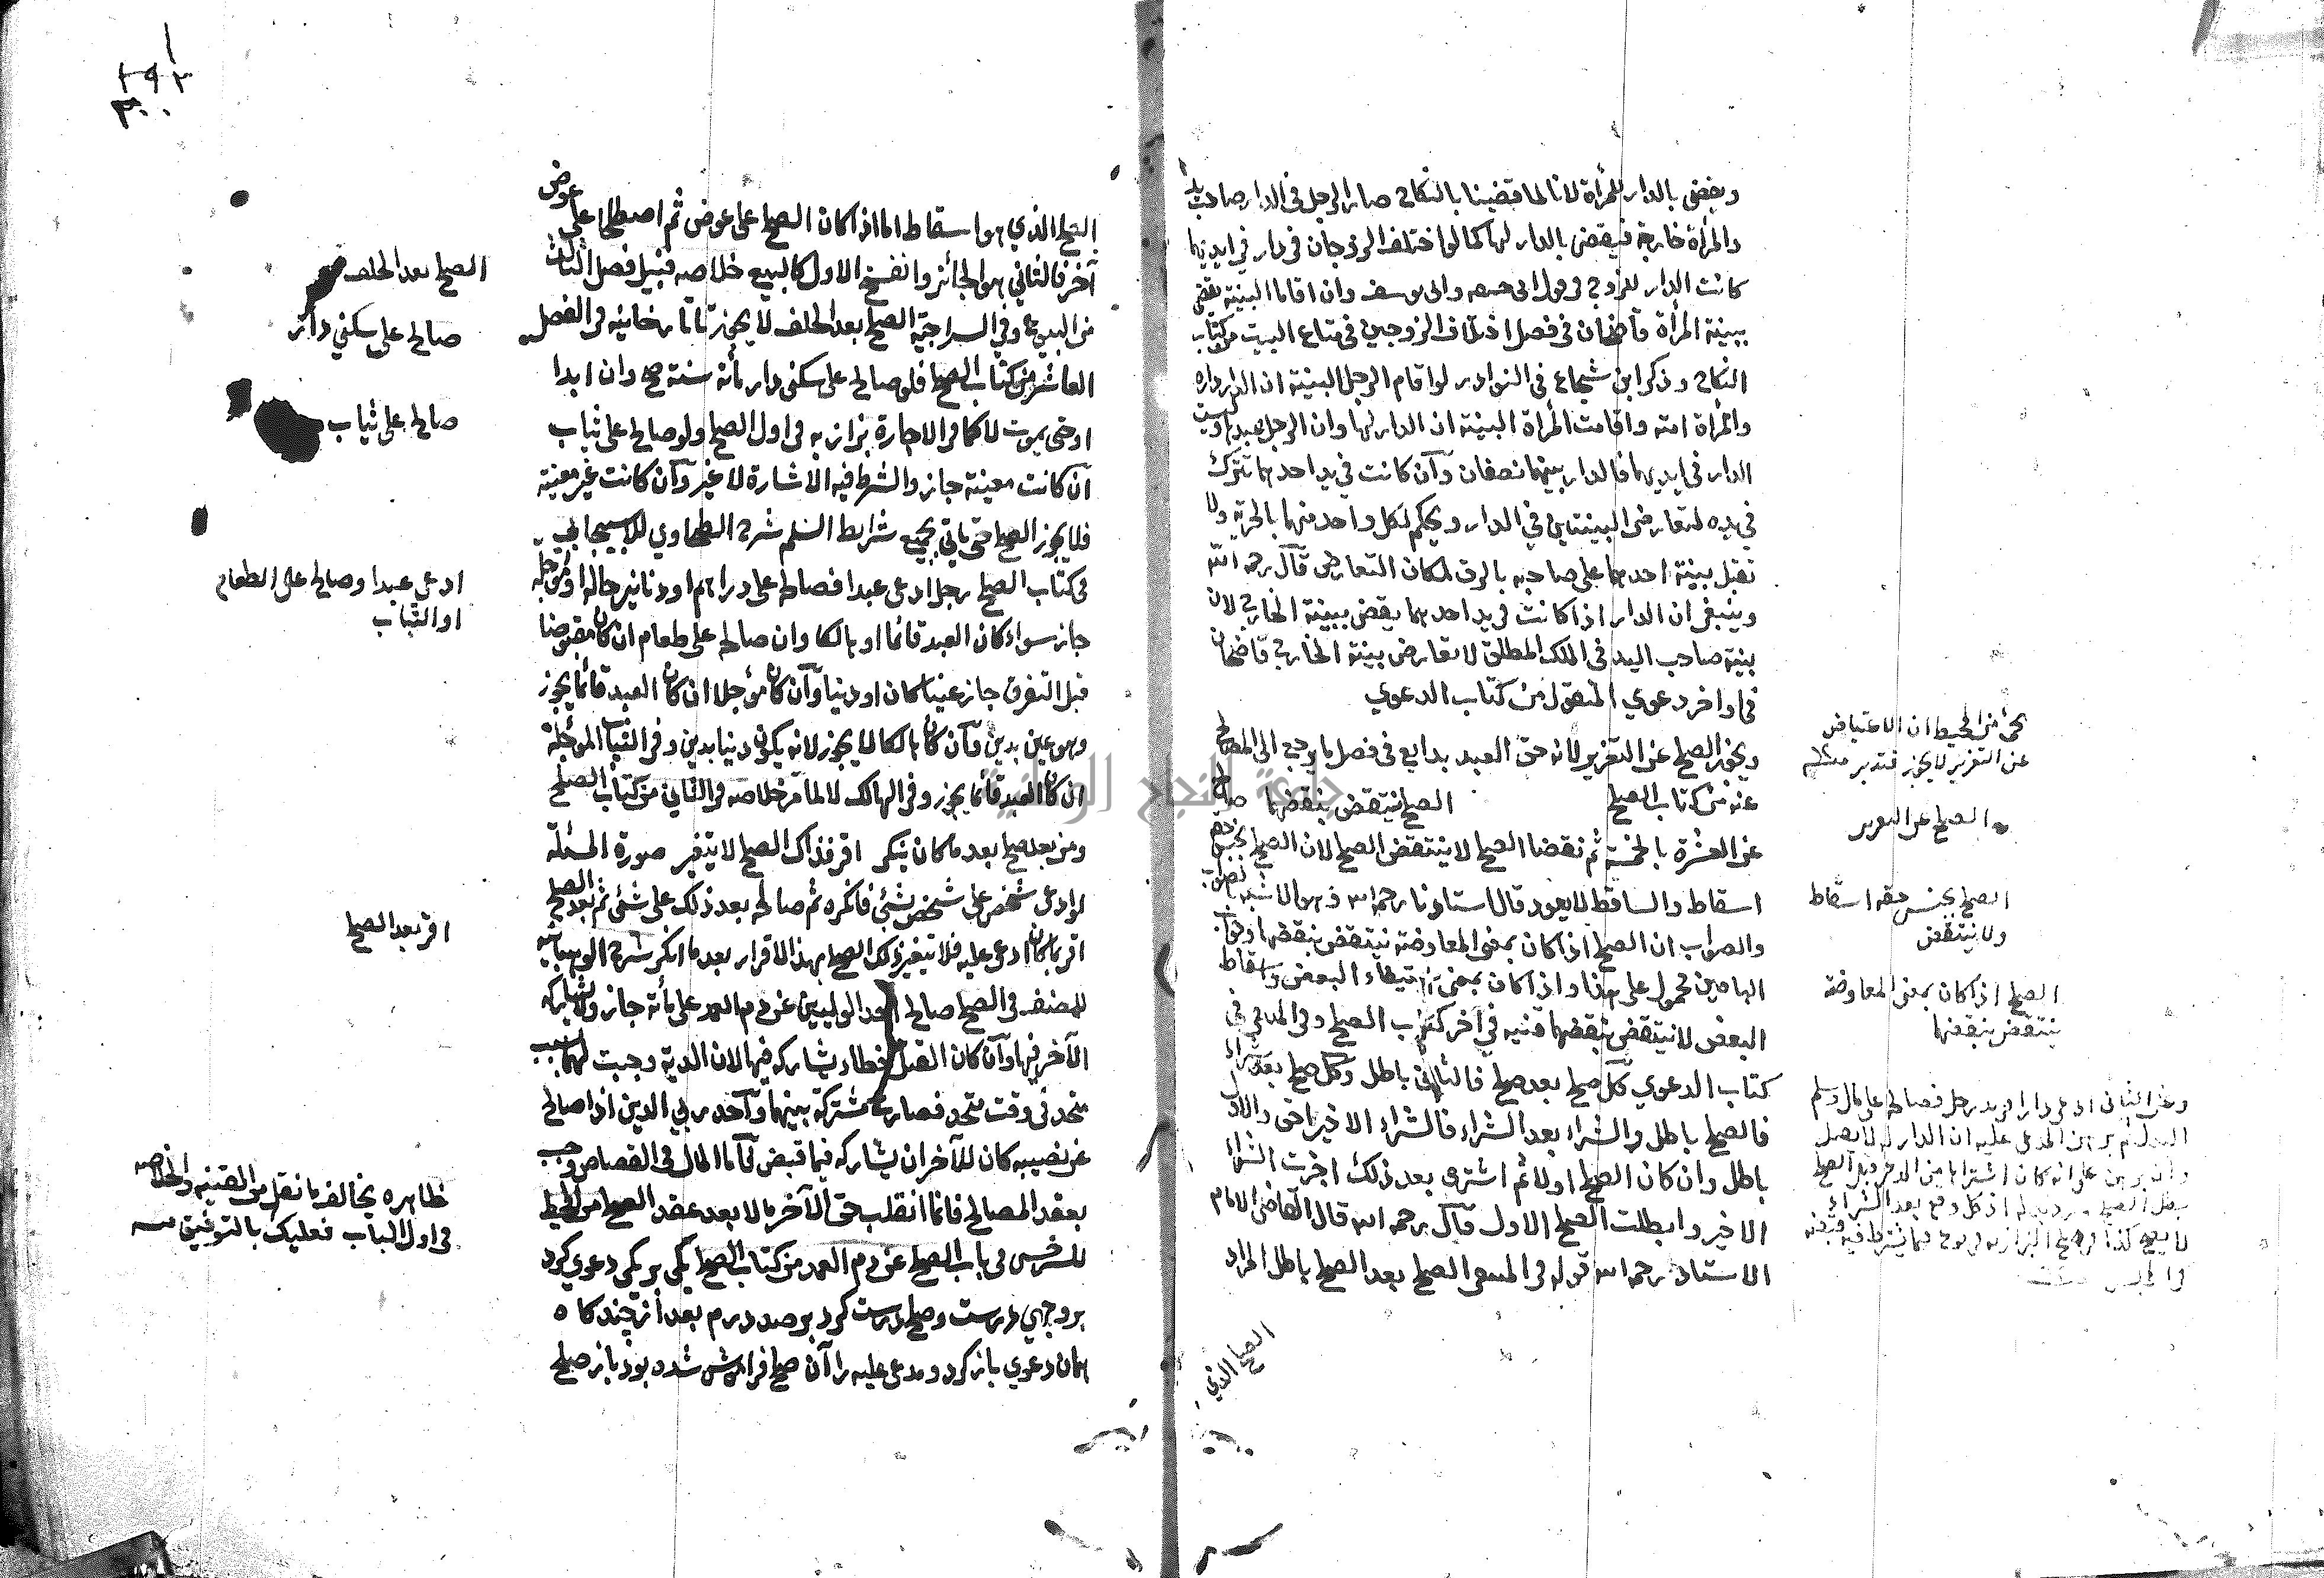 ويقضى بالدار للمرأة لانا لما قضينا بالنكاح صار الرجل في الدار صاحب يد
والمرأة خارجة فيقضى بالدار لها كما لو اختلف الزوجان في دار في ايديهما
كانت الدار للزوج في قول ابى حنيفه وابى يوسف وان اقاما البينة يقضى
ببينة المرأة قاضيخان في فصل اختلاف الزوجين في متاع البيت من كتاب
النكاح وذكر ابن شجاع في النوادر لو اقام الرجل البينة ان الدار داره
والمرأة امته واقامت المرأة البينة ان الدار لها وان الرجل عبدها وليست
الدار في ايديهما فالدار بينهما نصفان وآن كانت في يد احدهما تترك
في يده لتعارض البينتين في الدار ويحكم لكل واحد منهما بالحرية ولا
تقبل بينة احدهما على صاحبه بالرق لمكان التعارض قآل رحمه الله
وينبغى ان الدار اذا كانت في يد احدهما يقضى ببينة الخارج لان
بينة صاحب اليد في الملك المطلق لا تعارض بينة الخارج قاضيخان
في اواخر دعوي المنقول من كتاب الدعوي
ويجوز الصلح عن التعزير لانه حق العبد بدايع في فصل ما يرجع الى المصالح
عنه من كتاب الصلح الصلح ينتقض بنقضهما صالح
عن العشرة بالخمسة ثم نقضا الصلح لا ينتقض الصلح لان الصلح
اسقاط والساقط لا يعود قال استاذنا رحمه الله
والصواب ان الصلح اذا كان بمعنى المعاوضة ينتقض بنقضهما وجواب
محمول على هذا واذا كان بمعنى استيفاء البعض واسقاط
البعض لا ينتقض بنقضهما قنيه في آخر كتاب الصلح وفى
كتاب الدعوي كل صلح بعد صلح فالثاني باطل وكل صلح بعد شراء
فالصلح باطل والشراء بعد الشراء فالشراء الاخير احق والاول
باطل وان كان الصلح اولا ثم اشترى بعد ذلك اجزت الشراء
الاخير وابطلت الصلح الاول قآل رحمه الله قال القاضى الامام
الاستاذ رحمه الله قوله في الصلح بعد الصلح باطل المراد
الصلح الذي
عن التعزير لا يجوز فتدبر
الصلح عن التعزير
الصلح بجنس حقه اسقاط
ولا ينتقض
الصلح اذا كان بمعنى المعاوضة
ينتقض بنقضهما
الصلح الذي هو اسقاط اما اذا كان الصلح على عوض ثم اصطلحا على عوض
آخر فالثاني هو الجائز وانفسخ الاول كالبيع خلاصه قبيل فصل الثالث
من البيوع وفي السراجية الصلح بعد الحلف لا يجوز تاتارخانيه في الفصل
العاشر من كتاب الصلح فلو صالح على سكنى دار مأة سنة صح وان ابدا
او حتى يموت لا كما في الاجارة بزازيه في اول الصلح ولو صالح على ثياب
آن كانت معينة جاز والشرط فيه الاشارة لا غير وآن كانت غير معينة
فلا يجوز الصلح حتى يأتي بجميع شرايط السلم شرح الطحاوي للاسبيجابي
في كتاب الصلح رجل ادعى عبدا فصالحه على دراهم او دنانير حالة او مؤجلة
جاز سواء كان العبد قائما او هالكا وان صالحه على طعام ان كان مقبوضا
قبل التفرق جاز عينا كان او دينا وآن كان مؤجلا ان كان العبد قائما يجوز
وهو عين بدين وآن كان هالكا لا يجوز لانه يكون دينا بدين وفي الثياب المؤجلة
ان كان العبد قائما يجوز وفي الهالك لا لما مر خلاصه في الثاني من كتاب الصلح
ومن بعد صلح بعد ما كان ينكر اقر فذاك الصلح لا يتغير صورة المسئلة
لو ادعى شخص على شخص بشئ فانكره ثم صالحه بعد ذلك على شئ ثم بعد الصلح
اقر بما كان ادعى عليه فلا يتغير ذلك الصلح بهذا الاقرار بعد ما انكر شرح الوهبانيه
للمصنف في الصلح صالح احد الوليين عن دم العمد على مأة جاز ولا يشاركه
الآخر فيها وآن كان القتل خطاء يشاركه فيها لان الدية وجبت لهما بسبب
متحد في وقت متحد فصارت مشتركة بينهما وآحد ربي الدين اذا صالح
عن نصيبه كان للآخر ان يشاركه فيما قبض فآما المال في القصاص وجب
بعقد المصالح فانما انقلب حق الآخر مالا بعد عقد الصلح من المحيط
للسرخسى في باب الصلح عن دم العمد من كتاب الصلح يكي بر يكي دعوي كرد
بر وجهي درست وصلح درست كرد بر صد درم بعد از چند كاه
همان دعوي باز كرد ومدعى عليه را آن صلح فراموش شده بود باز صلح
الصلح بعد الحلف
صالح على سكني دار
صالح على ثياب
ادعى عبدا وصالح على الطعام
او الثياب
اقر بعد الصلح
ظاهره يخالف ما نقل من القنيه والخلاصه
في اول الباب فعليك بالتوفيق منه